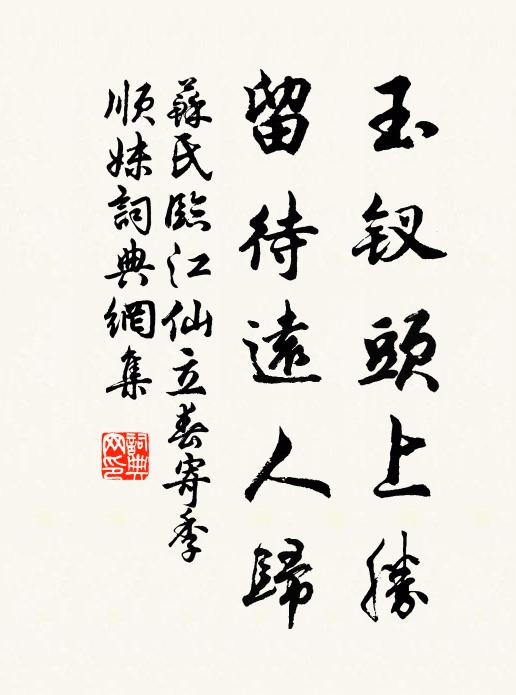 玉釵頭上勝
留待遠人歸
蘇氏臨江仙立春寄季
順妹詞典網集
詞典
网印